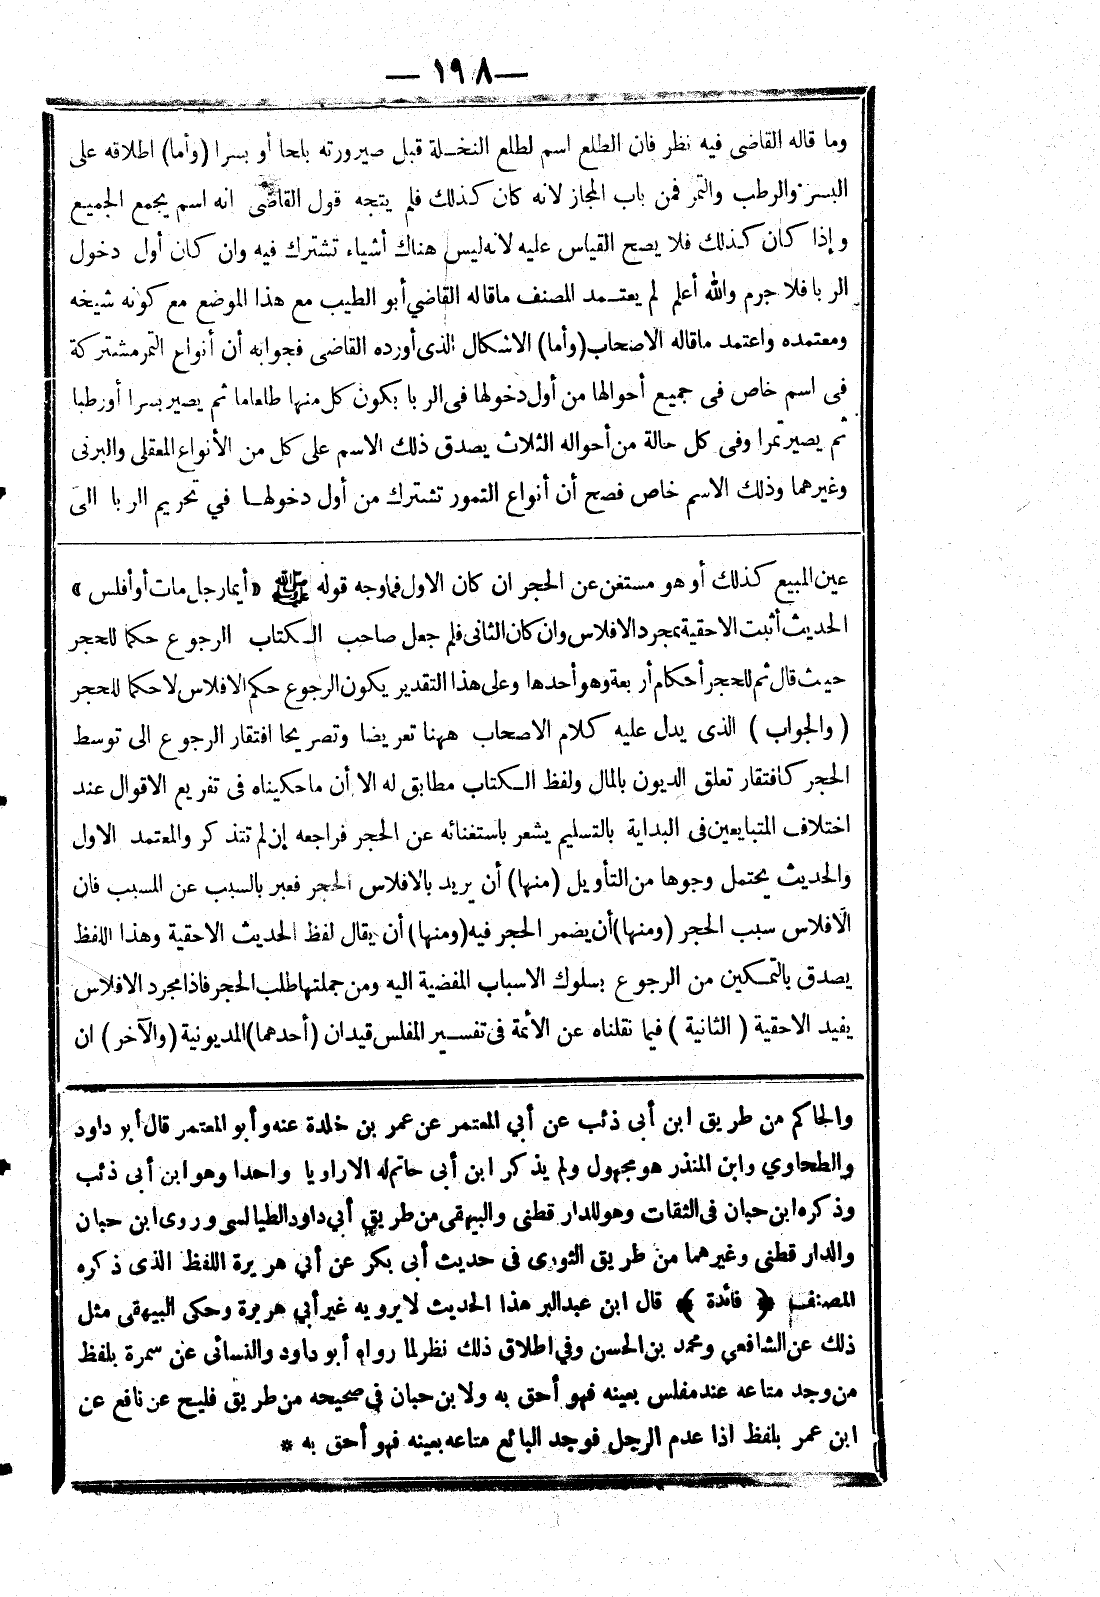 — ١٩٨ —
وما قاله القاضى فيه نظر فان الطلع اسم لطلع النخلة قبل صيرورته بلحا أو بسرا (وأما) اطلاقه على
البسر والرطب والتمر فمن باب المجاز لانه كان كذلك فلم يتجه قول القاضى انه اسم يجمع الجميع
وإذا كان كذلك فلا يصح القياس عليه لانه ليس هناك أشياء تشترك فيه وان كان أول دخول
الربا فلا جرم والله أعلم لم يعتمد المصنف ماقاله القاضي أبو الطيب مع هذا الموضع مع كونه شيخه
ومعتمده واعتمد ماقاله الاصحاب (وأما) الاشكال الذى أورده القاضى فجوابه أن أنواع التمر مشتركة
فى اسم خاص فى جميع أحوالها من أول دخولها فى الربا بكون كل منها طلعا ما ثم يصير بسرا أو رطبا
ثم يصير تمرا وفى كل حالة من أحواله الثلاث يصدق ذلك الاسم على كل من الأنواع المعقلى والبرنى
وغيرهما وذلك الاسم خاص فصح أن أنواع التمور تشترك من أول دخولها في تحريم الربا الى
عين المبيع كذلك أو هو مستغن عن الحجر ان كان الاول فما وجه قوله ﷺ «أيما رجل مات أو أفلس»
الحديث أثبت الاحقية بمجرد الافلاس وان كان الثانى فلم جعل صاحب الكتاب الرجوع حكما للحجر
حيث قال ثم للحجر أحكام أربعة وهو أحدها وعلى هذا التقدير يكون الرجوع حكم الافلاس لا حكما للحجر
(والجواب) الذى يدل عليه كلام الاصحاب ههنا تعريضا وتصريحا افتقار الرجوع الى توسط
الحجر كافتقار تعلق الديون بالمال ولفظ الكتاب مطابق له الا أن ما حكيناه فى تفريع الاقوال عند
اختلاف المتبايعين فى البداية بالتسليم يشعر باستغنائه عن الحجر فراجعه إن لم تتذكر والمعتمد الاول
والحديث يحتمل وجوها من التأويل (منها) أن يريد بالافلاس الحجر فعبر بالسبب عن المسبب فان
الافلاس سبب الحجر (ومنها) أن يضمر الحجر فيه (ومنها) أن يقال لفظ الحديث الاحقية وهذا اللفظ
يصدق بالتمكين من الرجوع بسلوك الاسباب المفضية اليه ومن جملتها طلب الحجر فاذا مجرد الافلاس
يفيد الاحقية (الثانية) فيما نقلناه عن الأئمة فى تفسير المفلس قيدان (أحدهما) المديونية (والآخر) ان
والحاكم من طريق ابن أبى ذئب عن أبي المعتمر عن عمر بن خلدة عنه وأبو المعتمر قال أبو داود
والطحاوي وابن المنذر هو مجهول ولم يذكر ابن أبى حاتم له الا راويا واحدا وهو ابن أبى ذئب
وذكره ابن حبان فى الثقات وهو للدار قطنى والبيهقى من طريق أبي داود الطيالسى وروى ابن حبان
والدار قطنى وغيرهما من طريق الثورى فى حديث أبى بكر عن أبي هريرة اللفظ الذى ذكره
المصنف ﴿ فائدة ﴾ قال ابن عبدالبر هذا الحديث لا يرويه غير أبي هريرة وحكى البيهقى مثل
ذلك عن الشافعي ومحمد بن الحسن وفي اطلاق ذلك نظر لما رواه أبو داود والنسائى عن سمرة بلفظ
من وجد متاعه عند مفلس بعينه فهو أحق به ولابن حبان في صحيحه من طريق فليح عن نافع عن
ابن عمر بلفظ اذا عدم الرجل فوجد البائع متاعه بعينه فهو أحق به *